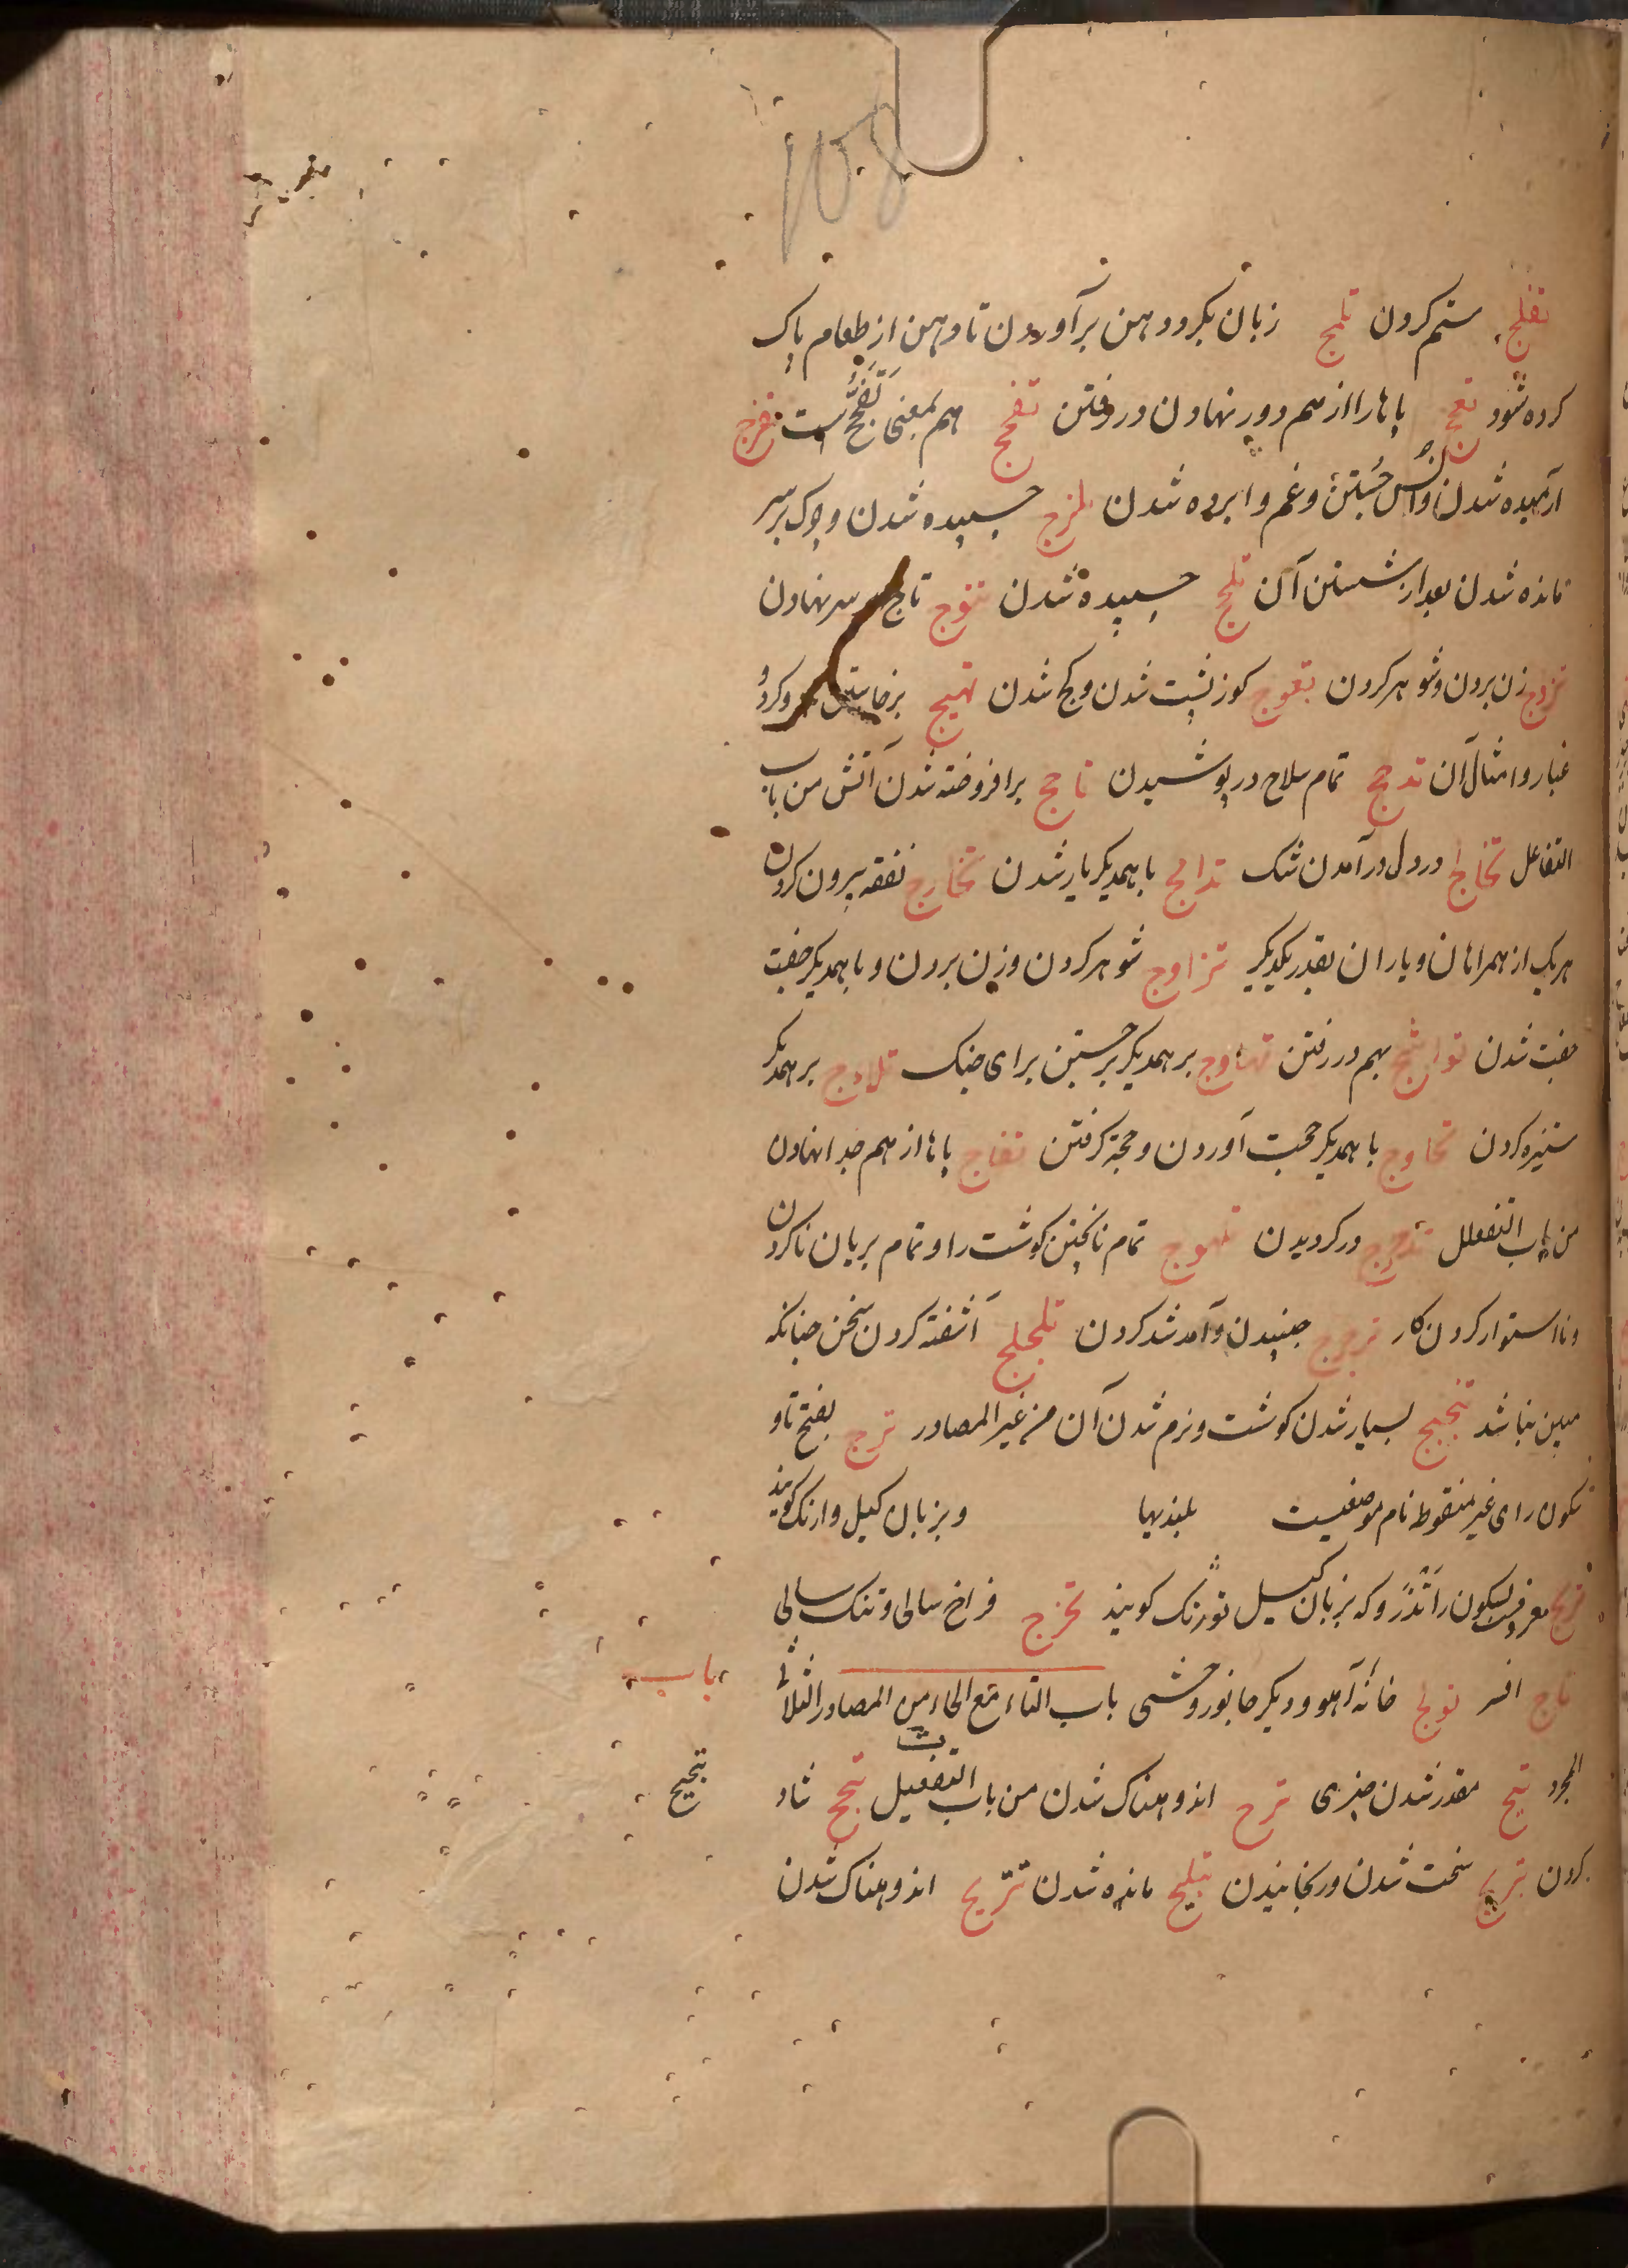 108
تفلج ستم کردن تلمج زبان بکرد دهن برآوردن تا دهن از طعام پاک
کرده شود تفجج پاها را از هم دور نهادن در رفتن تفحج هم بمعنی تَفَجُّج است تفرج
آرمیده شدن و انس جستن و غم وا برده شدن تلزج چسپیده شدن و چرک بر سر
مانده شدن بعد از شستن آن تلحج چسپیده شدن تتوج تاج بر سر نهادن
تزوج زن بردن و شوهر کردن تعوج کوز پشت شدن و کج شدن تهیج برخاستن و کرد و
غبار و امثال آن تدجج تمام سلاح در پوشیدن تاجج برافروخته شدن آتش من باب
التفاعل تخالج در دل در آمدن شک تدامج با همدیکر یار شدن تخارج نفقه بیرون کردن
هر یک از همراهان و یاران بقدر یکدیکر تزاوج شوهر کردن و زن بردن و با همدیکر جفت
جفت شدن تواشج بهم در رفتن تهاوج بر همدیکر برجستن برای جنک تلاوج بر همدیکر
ستیزه کردن تحاوج با همدیکر حجت آوردن و حجة کرفتن تفاج پاها از هم جدا نهادن
من باب التفعلل تدحرج در کردیدن تلهوج تمام ناپختن کوشت را و تمام بریان نا کردن
و نا استوار کردن کار ترجرج جنبیدن و آمد شد کردن تلجلج آشفته کردن سخن چنانکه
مبین نباشد تبجبج بسیار شدن کوشت و نرم شدن آن من غیر المصادر ترج بفتح تا و
سکون رای غیر منقوطه نام موضعیست بلندیها و بزبان کیل وارنک کویند
معرفست بسکون را تَذَرو که بزبان کیل تورنک کویند تخرج فراخ سالی و تنک سالی
تاج افسر تولج خانهٔ آهو و دیکر جانور وحشی باب التاء مع الحاء من المصادر الثلاثی
باب
المجرد تیح مقدر شدن چیزی ترح اندوهناک شدن من باب التفعیل تبجح شاد
تبجیح
کردن تبریح سخت شدن و رنجانیدن تبلیح مانده شدن تتریح اندوهناک شدن